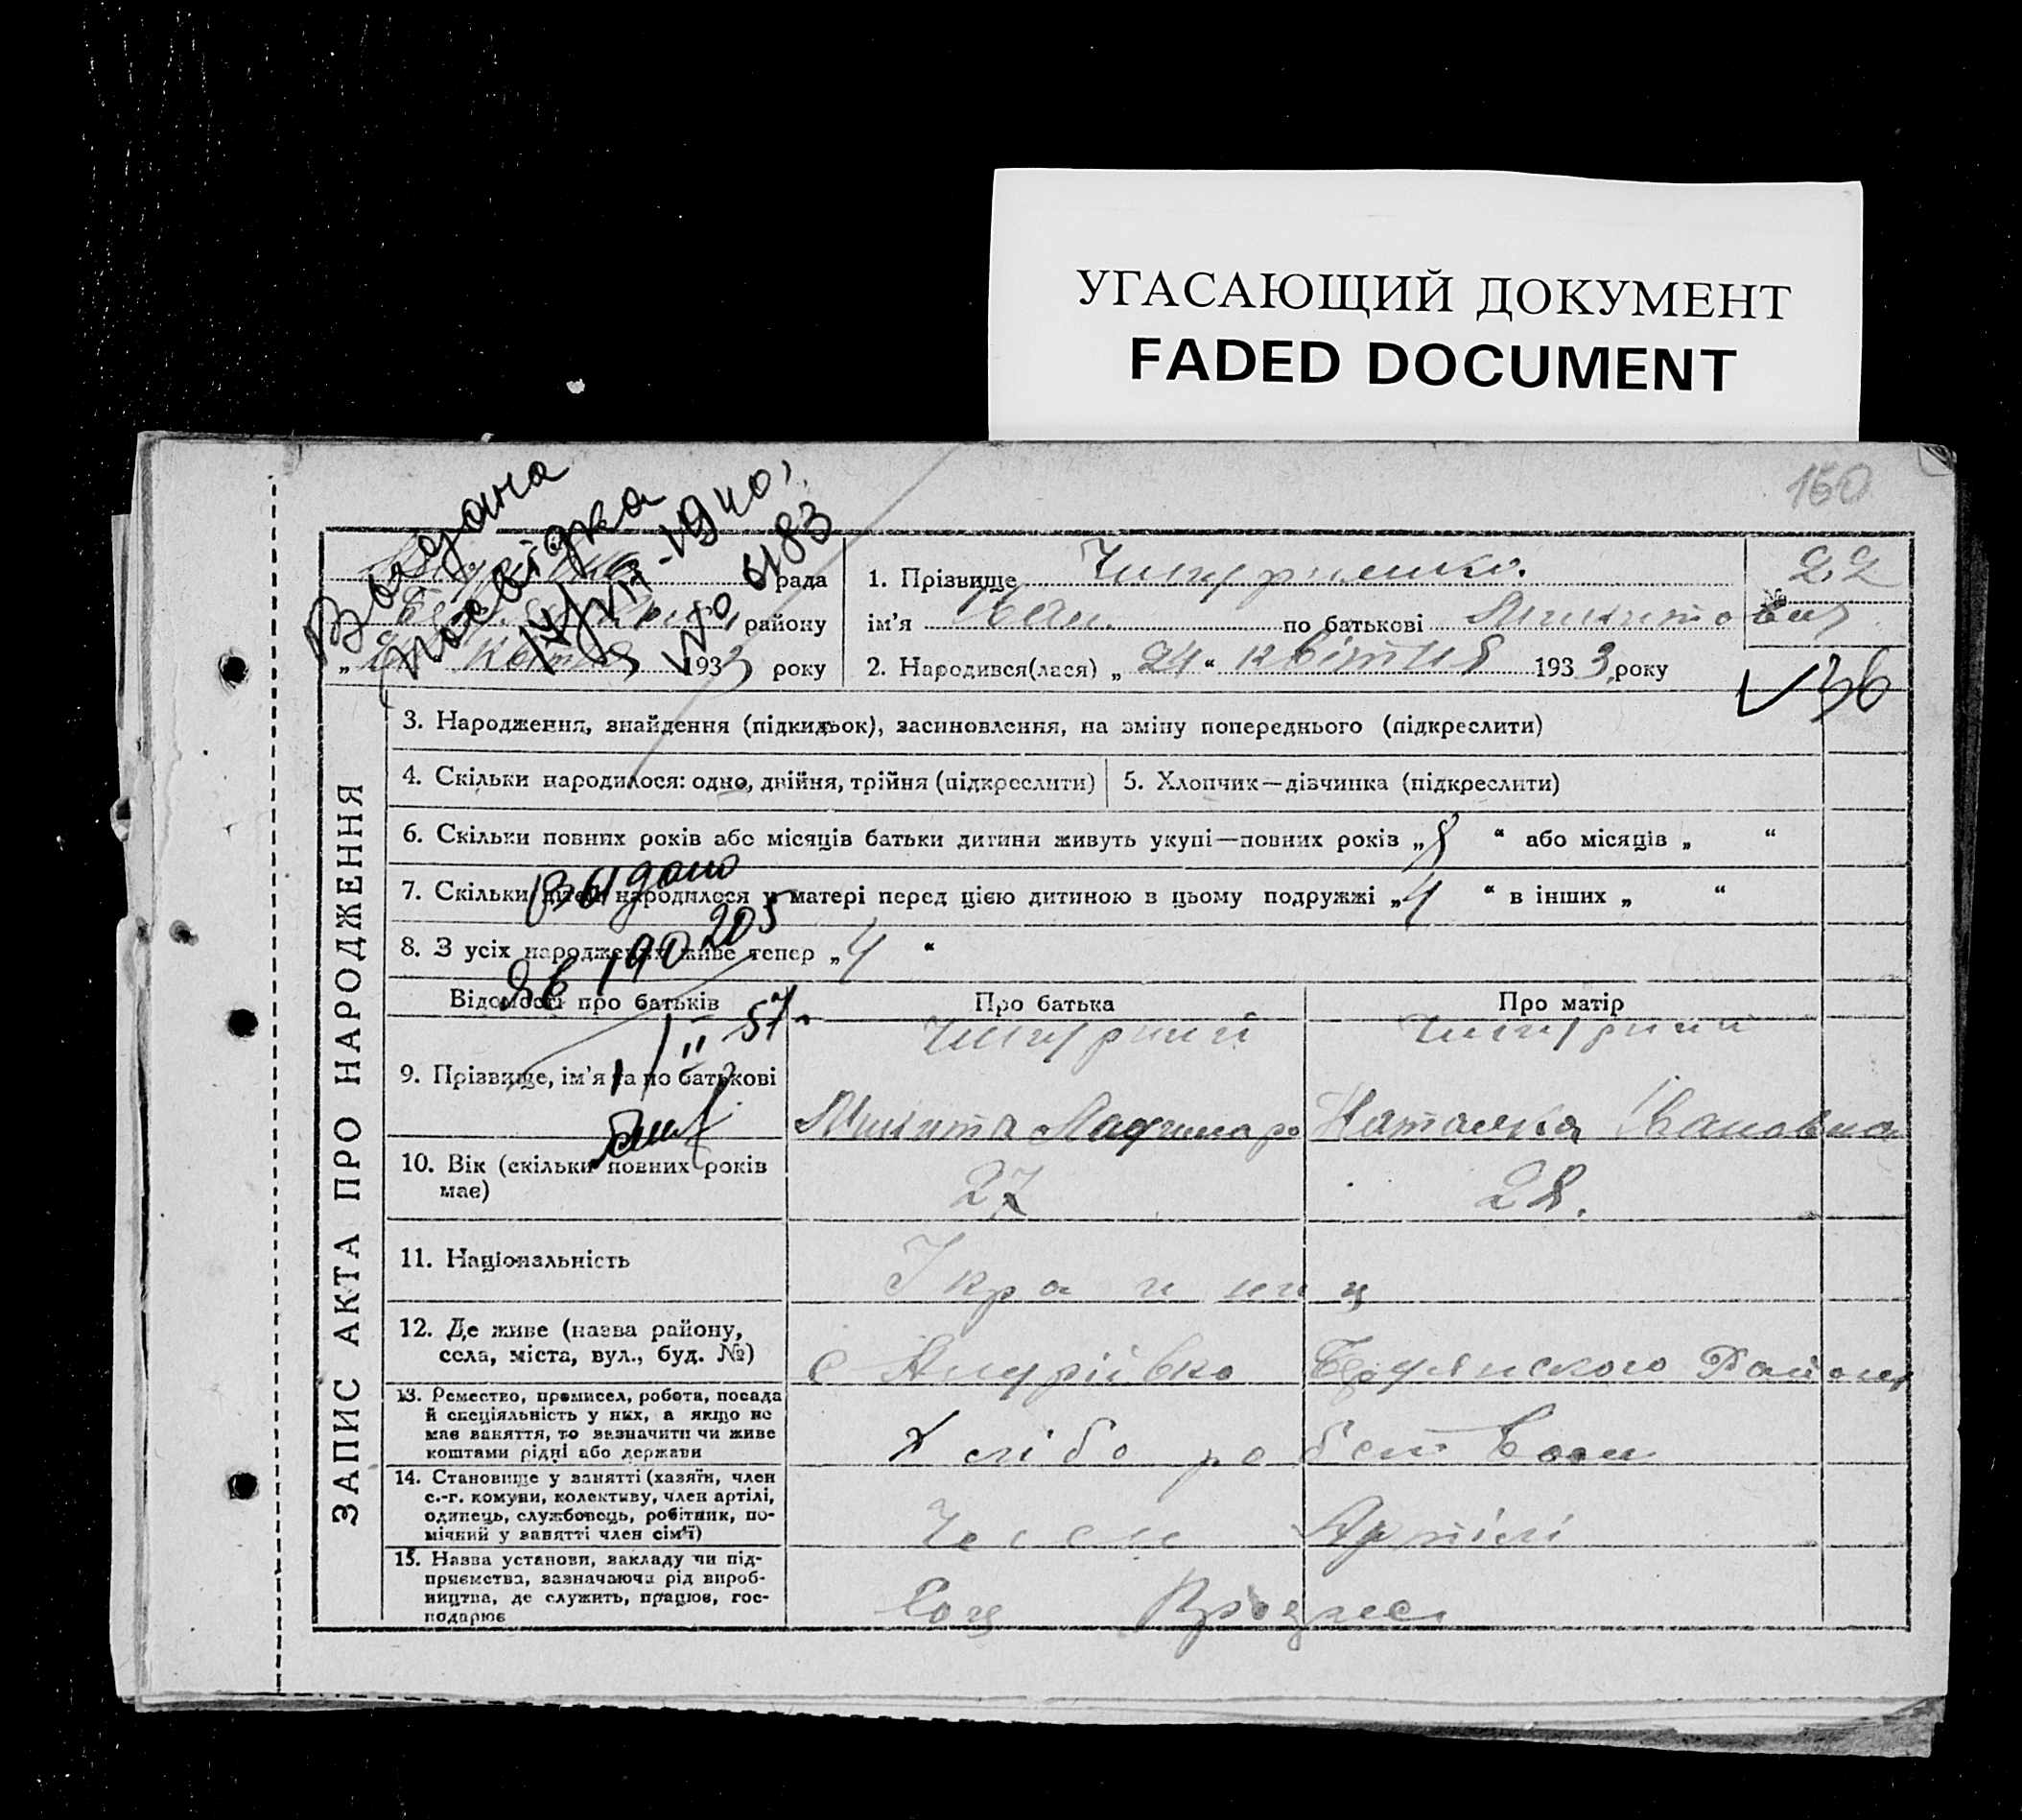 УГАСАЮЩИЙ ДОКУМЕНТ
FADED DOCUMENT
150
Видана
посвідка
14/VII-1940,
No 6183
рада
району
„ “ 1933 року
1. Прізвище
22
ім’я Іван по батькові Микитович
2. Народився(лася) „24“ квітня 1933 року
36
ЗАПИС АКТА ПРО НАРОДЖЕННЯ
3. Народження, знайдення (підкидьок), засиновлення, на зміну попереднього (підкреслити)
4. Скільки народилося: одно, двійня, трійня (підкреслити)
5. Хлопчик—дівчинка (підкреслити)
6. Скільки повних років або місяців батьки дитини живуть укупі—повних років „8“ або місяців „ “
7. Скільки дітей народилося у матері перед цією дитиною в цьому подружжі „4“ в інших „ “
8. З усіх народжених живе тепер „4“
Выдано
205
Відомості про батьків
Про батька
Про матір
9. Прізвище, ім’я та по батькові
Микита
Наталка Івановна
10. Вік (скільки повних років
має)
27
28.
11. Національність
Україниц
12. Де живе (назва району,
села, міста, вул., буд. №)
с Андріївка Бердянского Району
13. Ремество, промисел, робота, посада
й спеціяльність у них, а якщо не
має заняття, то зазначити чи живе
коштами рідні або держави
Хліборобством
14. Становище у занятті (хазяїн, член
с.-г. комуни, колективу, член артілі,
одинець, службовець, робітник, по-
мічний у занятті член сім’ї)
Член Артілі
15. Назва установи, закладу чи під-
приємства, зазначаючи рід вироб-
ництва, де служить, працює, гос-
подарює
Соц Прогрес